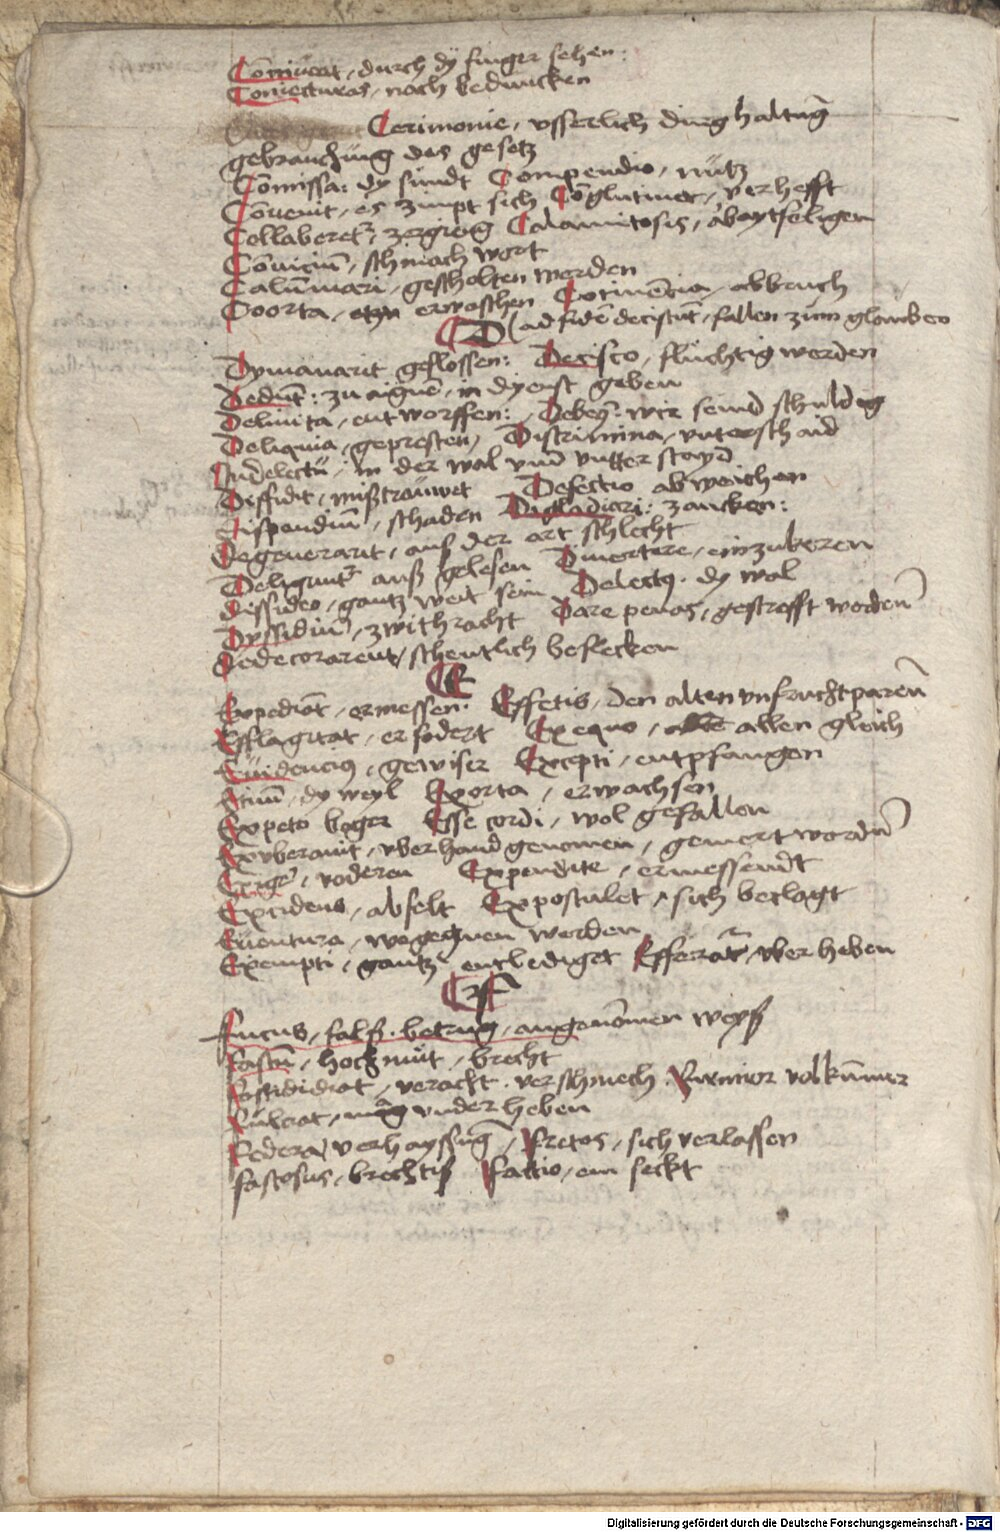 Cōniueāt, durch dÿ finger sehen:
Coniecturas, noch beduncken
Cerimonie, vsserlich dinghaltūg
gebrauchūng des gesetz
Cōmissa: dy sündt Compendio, nütz
Cōuenit, es zimpt sich Cōglutinet, verhefft
Collaberet᷑, zergieng Calamitosis, arbaytseligen
Cōuiciū, schmach wort
Calūmiari, gescholten werden
Coorta, erwaschen Cōtinēcia, abbruch
D ad fidē decistūt, fallen zům glawben
Dymanarit geflossen: Decisco, flüchtig werden
Dedūt: zu aignē, in dyenst geben
Delinita, entworffen: Debeꝯ: wir seind schuldig
Deliquia, gepresten, Discrimina, vnterschaid
In delectu, in der wal vnd vntterscayd
Diffidit, mißtrauwet Defectio abweichen
Dispendiū, schaden Digladiari: zancken:
Degenerarit, auß der art schlecht
Deligunt᷑ auß gelesen Diuertere, einzukeren
Dissideo, gantz weit sein Delectꝯ. dy wal
Dyssidiū, zwithracht Dare penas, gestrafft werden
Dedecorarent, schentlich beflecken
E
Expediāt, ermessen: Effetis, den alten vnfruchtparen
Efflagitat, erfodert Ex equo, allen gleich
Euidencius, gewiser Excepti, entpfangen
Etiuū, dy weyl Exorta, erwachsen
Expeto beger Esse cordi, wol gefallen
Exuberauit, vberhand genomen, gemert worden
Exige, voderen Expendite, ermessendt
Excidens, abfelt Expostulet, sich beclagt
Euentura, wegegnen werden
Exempti, gantz entlediget Efferāt, vberheben
F
Fucus, falsch. betrug, angenōmen weyß
Fastū, hochmüt, brecht
Fastididiat, veracht. verschmech. Firmior volkūmer
Fulciat, vnderheben
Federa, verhayssūg, Fretos, sich verlassen
fastosus, brechtiß Factio, ein seckt
Digitalisierung gefördert durch die Deutsche Forschungsgemeinschaft - DFG